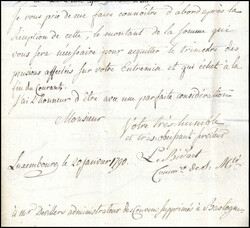 Je vous prie de me faire connoître d'abord après la
réception de cette, le montant de la somme que
vous sera necessaire pour acquitter le trimestre des
pensions affectés sur votre Entremise et qui échet à la
fin du Courant.
J'ai l'honneur d'être avec une parfaite considération
Monsieur
Votre très humble
et très obéissant serviteur
Luxembourg, le 20 janvier 1790.
administrateur des Couvens supprimés à Bastogne